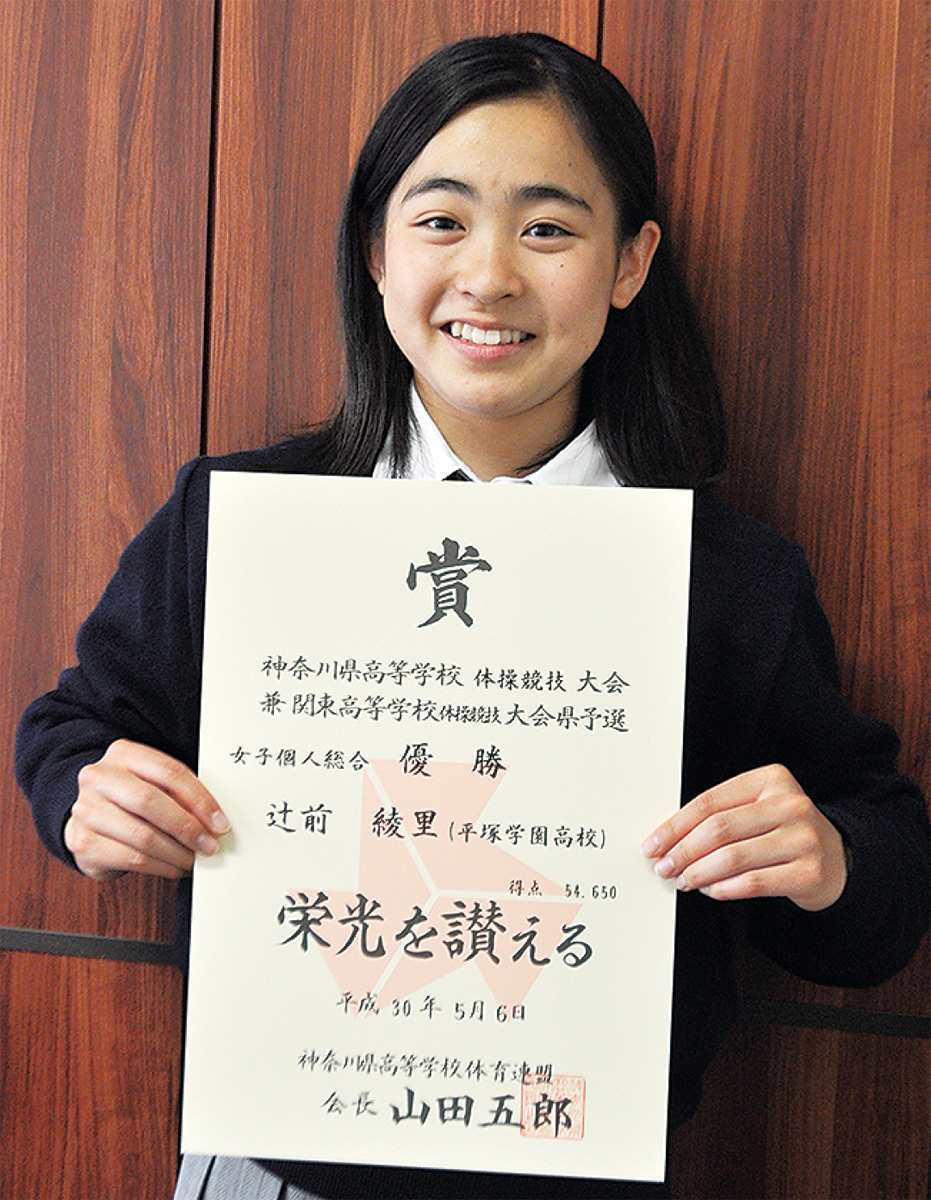 賞
神奈川県高等学校 体操競技 大会
兼 関東高等学校体操競技大会県予選
女子個人総合 優勝
辻前 綾里 (平塚学園高校)
得点 54.650
栄光を讃える
平成 30 年 5月 6日
神奈川県高等学校体育連盟
会長 山田五郎